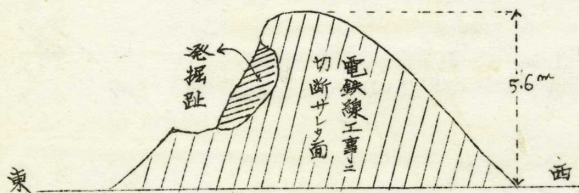 発掘趾
電鉄線工事ニ
切断サレタ面
5.6m
東
西